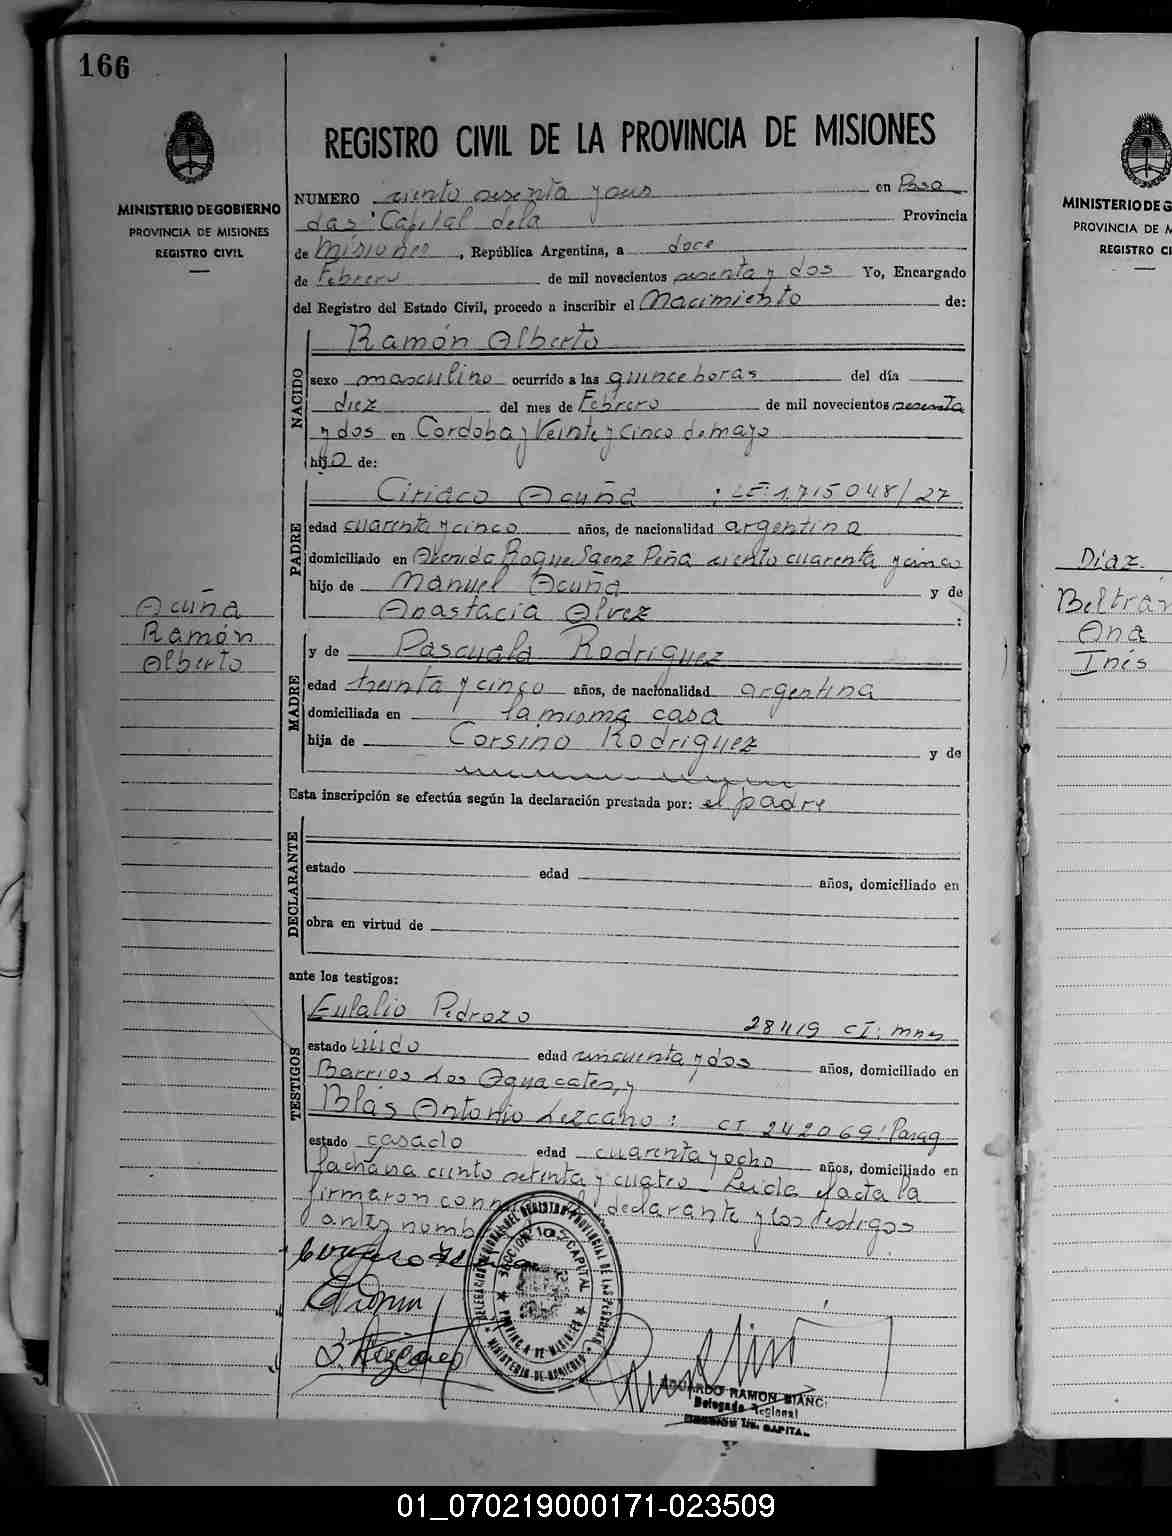 166
MINISTERIO DE GOBIERNO
PROVINCIA DE MISIONES
REGISTRO CIVIL
Acuña
Ramón
Alberto
REGISTRO CIVIL DE LA PROVINCIA DE MISIONES
NUMERO ciento sesenta y seis en Posa
das: Capital de la Provincia
de Misiones, República Argentina, a doce
de Febrero de mil novecientos sesenta y dos Yo, Encargado
del Registro del Estado Civil, procedo a inscribir el Nacimiento de:
NACIDO
Ramón Alberto
sexo masculino ocurrido a las quince horas del día
diez del mes de Febrero de mil novecientos sesenta
y dos en Cordoba y Veinte y cinco de mayo
hijo de:
PADRE
Ciriaco Acuña : LE: 1.715048/27
edad cuarenta y cinco años, de nacionalidad argentina
domiciliado en Avenida Roque Saenz Peña ciento cuarenta y cinco
hijo de Manuel Acuña y de
Anastacia Alvez :
MADRE
y de Pascuala Rodriguez
edad treinta y cinco años, de nacionalidad argentina
domiciliada en la misma casa
hija de Corsino Rodriguez y de
Esta inscripción se efectúa según la declaración prestada por: el padre
DECLARANTE
estado edad años, domiciliado en
obra en virtud de
ante los testigos:
TESTIGOS
Eulalio Pedrozo 28419 CI: Mnes
estado viudo edad cincuenta y dos años, domiciliado en
Barrios Los Aguacates, y
Blás Antonio Lezcano: CI 242069: Parag
estado casado edad cuarenta y ocho años, domiciliado en
Jachana ciento setenta y cuatro Leida el acta la
firmaron con declarante y los testigos
antes nomb
SECCION 1a CAPITAL
PROVINCIA DE MISIONES
MINISTERIO DE GOBIERNO
EDUARDO RAMON BIANCI
Delegado Regional
SECCION 1a. CAPITAL
MINISTERIO DE G
PROVINCIA DE M
REGISTRO CI
Díaz
Beltrán
Ana
Inés
01_070219000171-023509